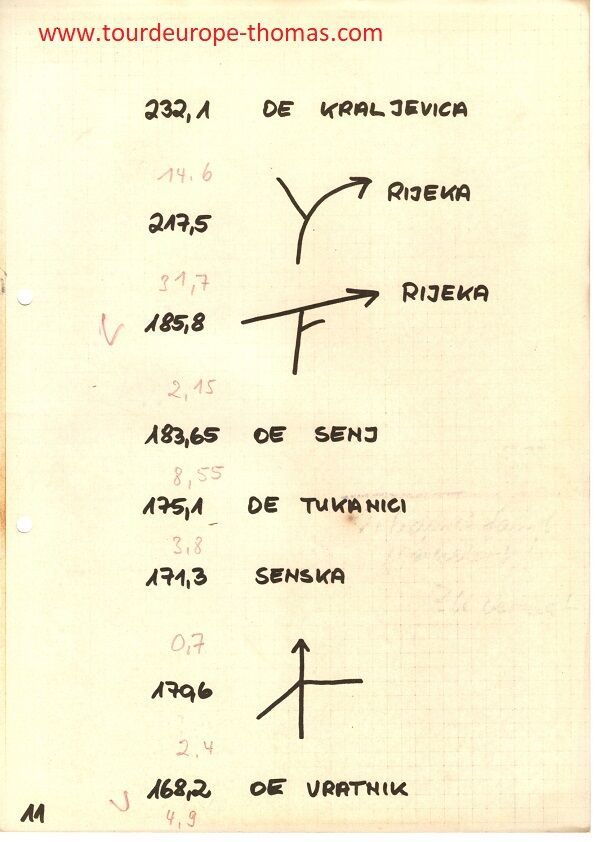 www.tourdeurope-thomas.com
232,1 OE KRALJEVICA
14.6
RIJEKA
217,5
31,7
RIJEKA
185,8
2,15
183,65 OE SENJ
8,55
175,1 OE TUKANICI
3.8
171,3 SENSKA
0,7
170,6
2.4
168,2 OE VRATNIK
4,9
11